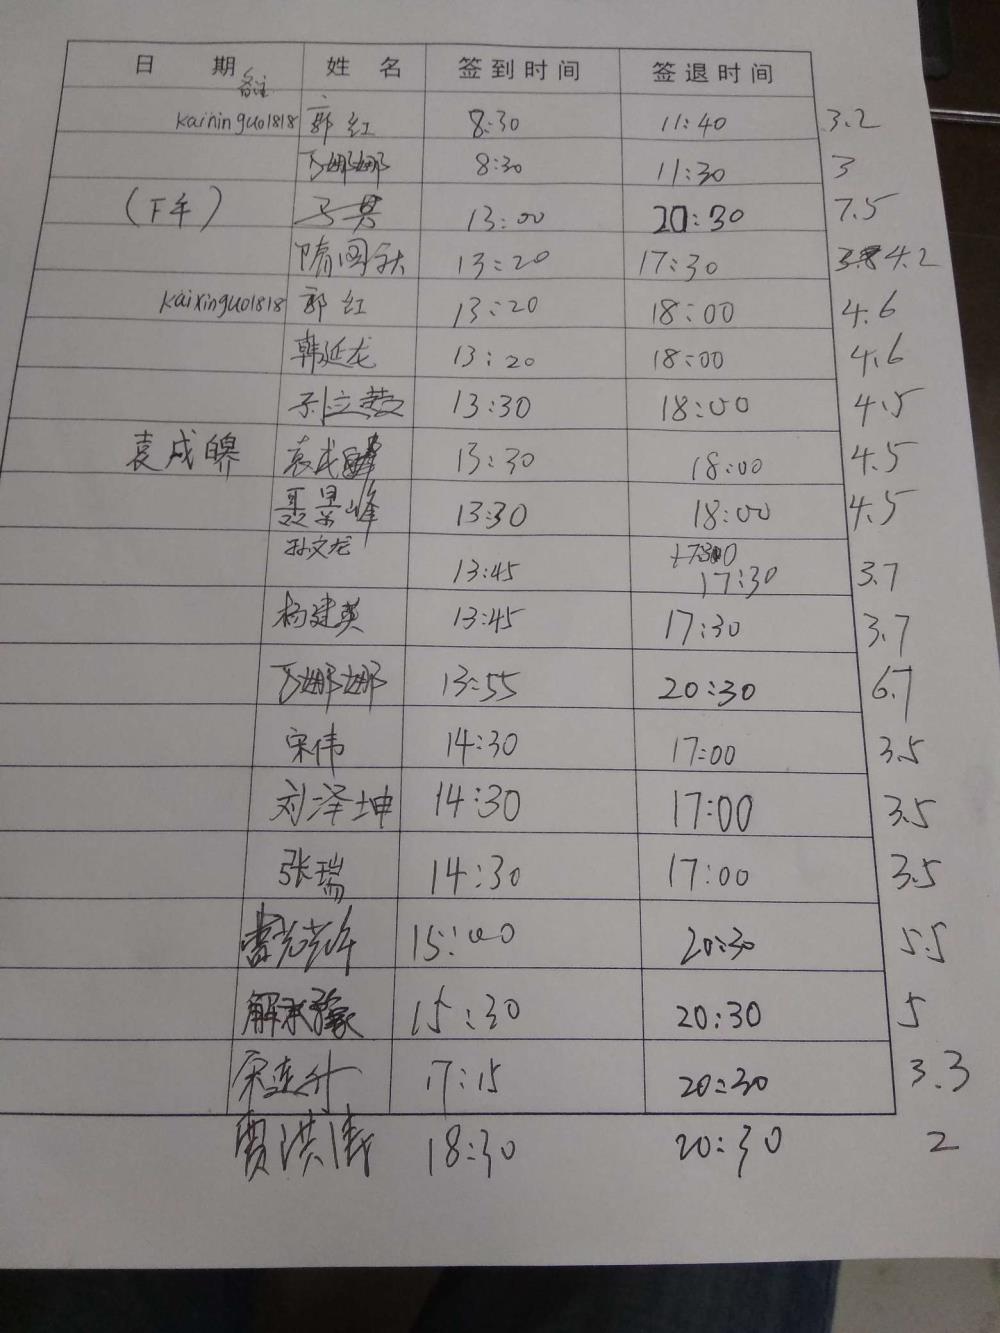 日 期 姓 名 签到时间 签退时间
备注
kaixinguo1818 郭红 8:30 11:40 3.2
娜娜 8:30 11:30 3
(下午) 13:00 20:30 7.5
隋国秋 13:20 17:30 4.2
kaixinguo1818 郭红 13:20 18:00 4.6
韩延龙 13:20 18:00 4.6
13:30 18:00 4.5
袁成 袁成 13:30 18:00 4.5
聂景峰 13:30 18:00 4.5
孙文龙 13:45 17:30 3.7
杨建英 13:45 17:30 3.7
娜娜 13:55 20:30 6.7
宋伟 14:30 17:00 3.5
刘泽坤 14:30 17:00 3.5
张瑞 14:30 17:00 3.5
15:00 20:30 5.5
解承豫 15:30 20:30 5
宋连升 17:15 20:30 3.3
贾洪涛 18:30 20:30 2